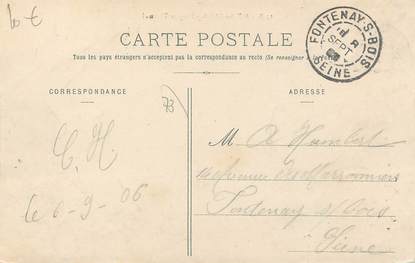 CARTE POSTALE
Tous les pays étrangers n'acceptent pas la correspondance au recto (Se renseigner
FONTENAY-S-BOIS
SEPT
SEINE
CORRESPONDANCE
ADRESSE
73
C. H.
le 6-9-06
M A Humbert
Avenue des Marronniers
Fontenay s/ Bois
Seine